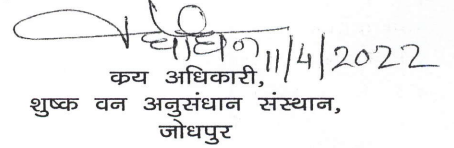 11/4/2022
क्रय अधिकारी,
शुष्क वन अनुसंधान संस्थान,
जोधपुर